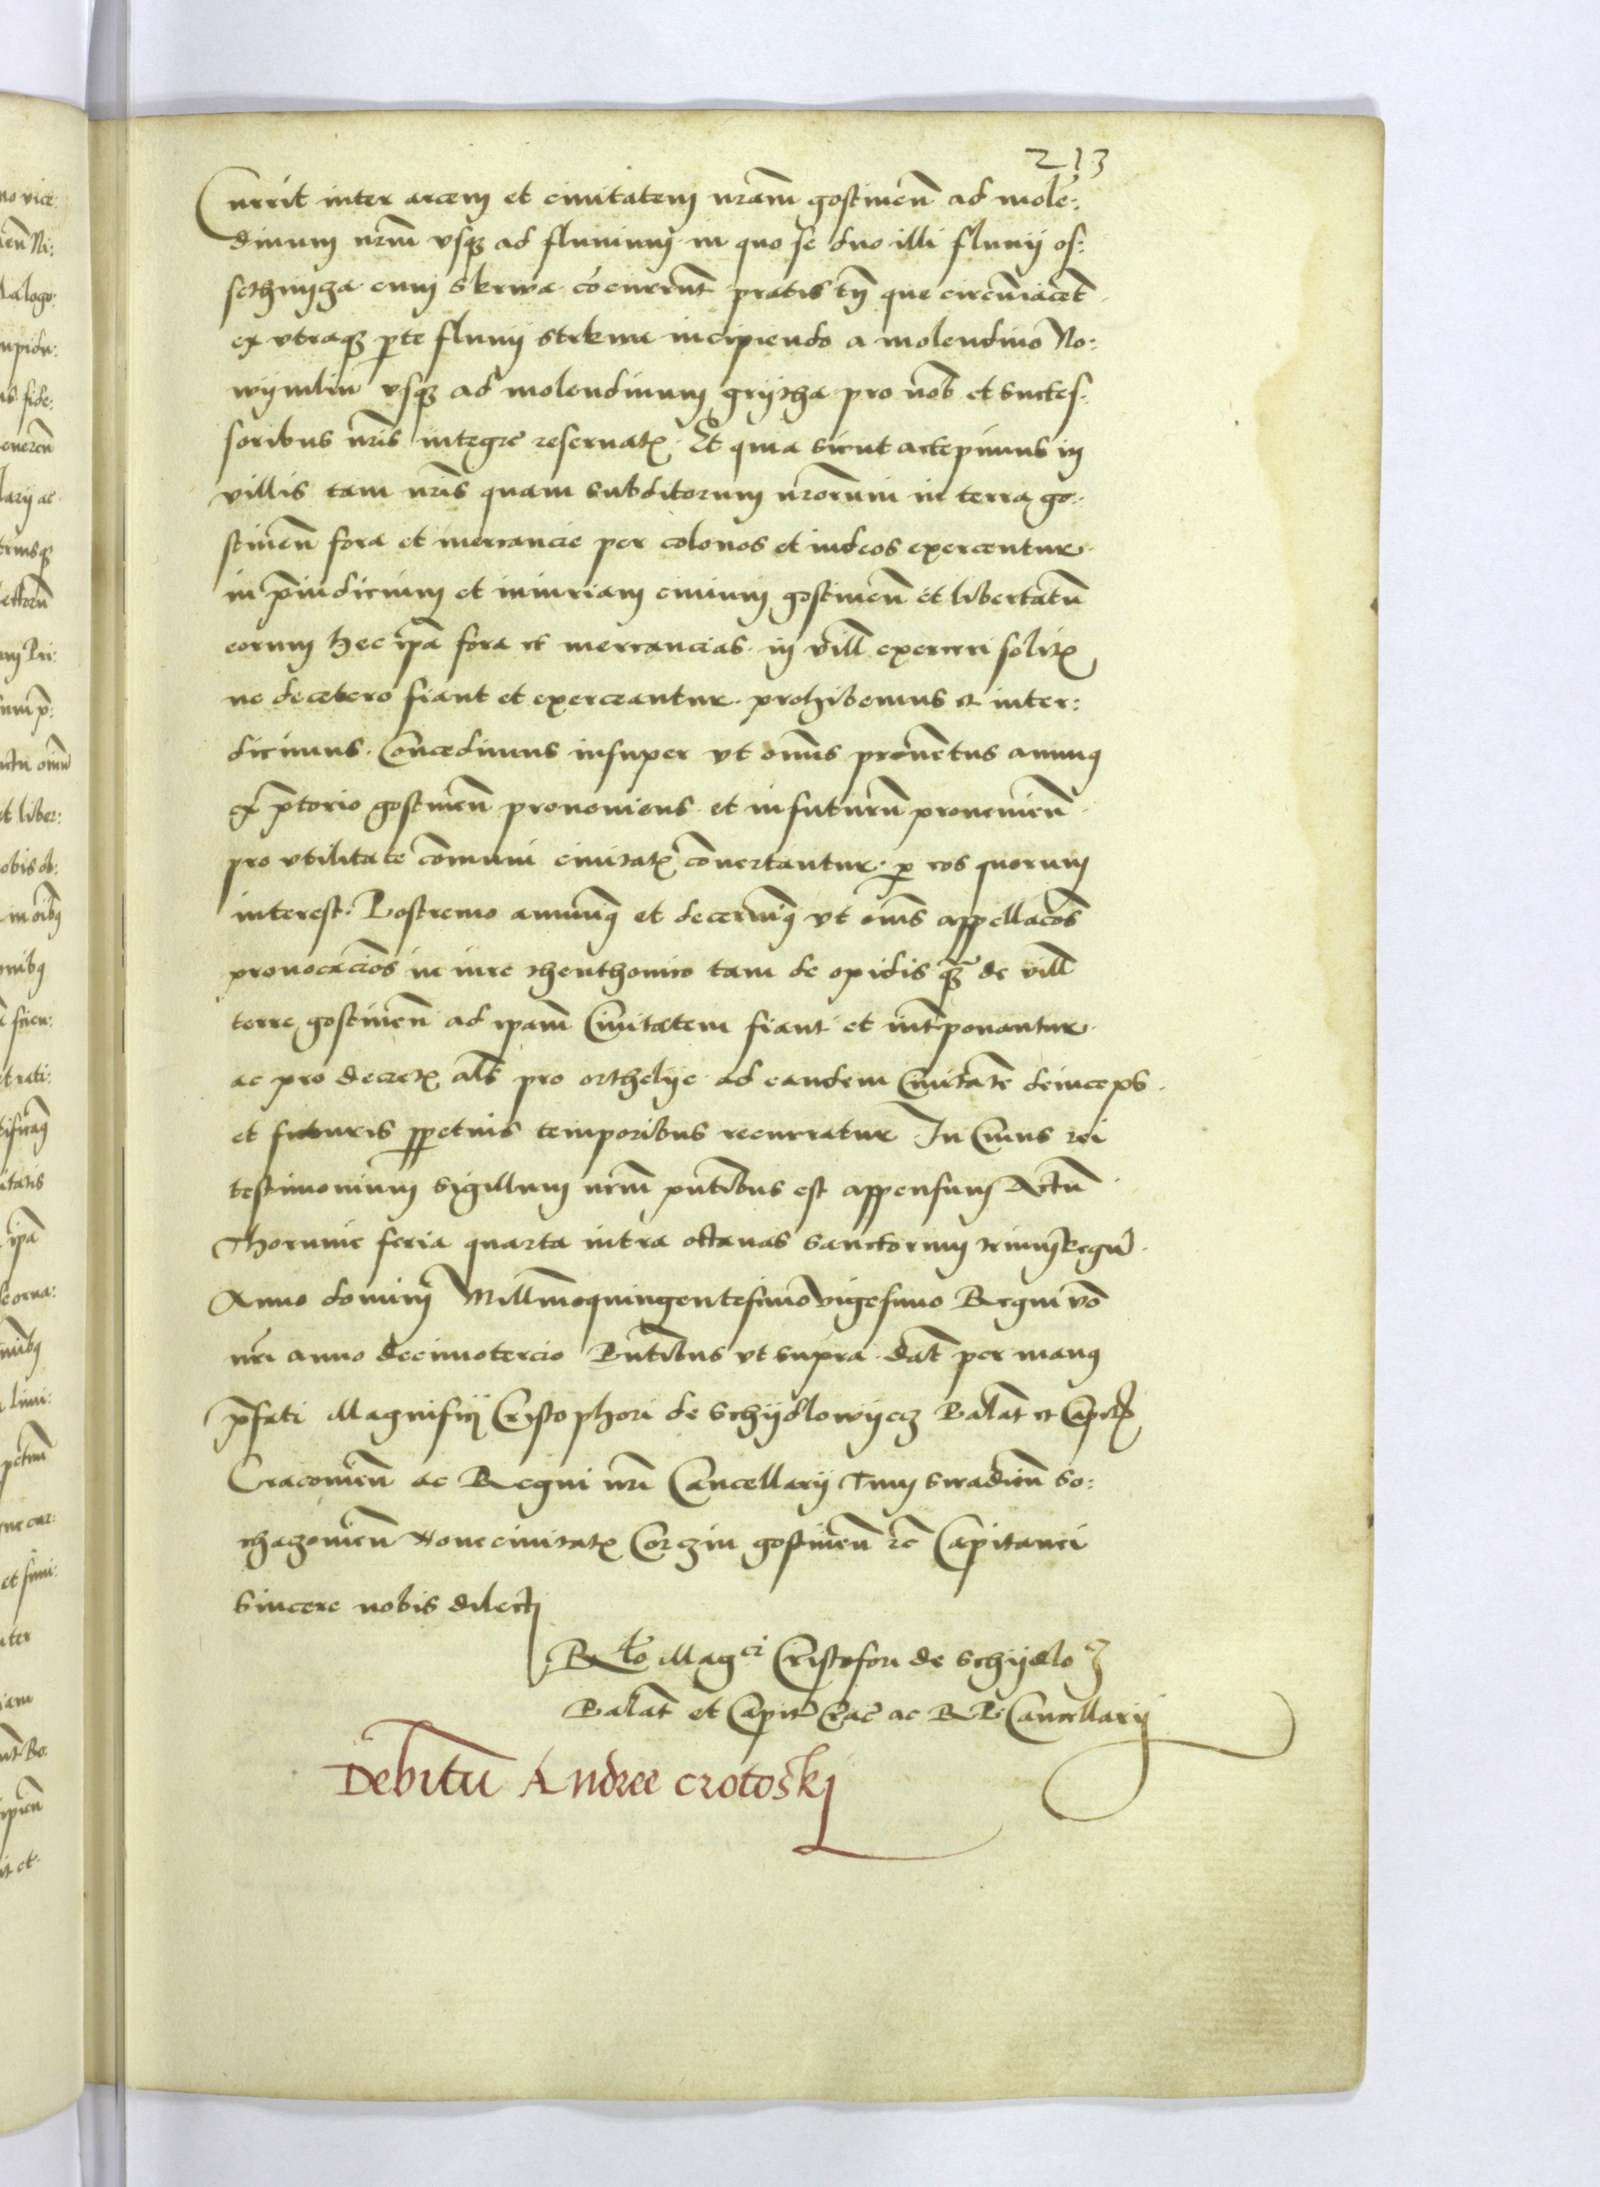 213
Currit inter arcem et civitatem nram̄ gostinen̄ ad mole:
dinum nrm̄ vsq ad fluvium in quo se duo illi fluvij os:
sethnycza cum skrwa cōcurrūnt pratis tn̄ que circūmiacēt
ex vtraq pte fluvij strkwa incipiendo a molendino No:
wymlin vsq ad molendinum grycza pro nob et succes:
soribus nris integre reservatꝭ. Et quia sicut accepimus in
villis tam nris quam subditorum nrorum in terra go:
stinen̄ fora et mercancie per colonos et iudeos exercentur
in p̄iudicium et iniuriam civium gostinen̄ et libertatū
eorum hec ipa fora et mercancias in vill exerceri solitꝭ
ne decetero fiant et exerceantur. prohibemus et inter:
dicimus. Concedimus insuper vt om̄s proventus annuꝯ
ex p̄torio gostinen̄ proveniens et in futurū provenien̄
pro vtilitate cōmuni civitatꝭ cōvertantur. ꝑ eos quorum
interest. Postremo annuimꝯ et decernimꝯ vt om̄s appellacōes
provocaciōes in iure thenthonico tam de opidis qꝫ̄ de vill
terre gostinen̄ ad ipam̄ Civitatem fiant et int̄ponantur
ac pro decretꝭ als pro orthelye ad eandem Civitatē deinceps
et futuris ꝑpetuis temporibus recurratur In Cuius rei
testimonium sigillum nrm̄ pn̄tibus est appensum Actū
Thorunie feria quarta intra octavas sanctorum trium Regū
Anno domini Millmoquingentesimo vigesimo Regni vō
nri anno decimotercio Pn̄tibus vt supra dat̄ per manꝯ
p̄fati Magnifici Cristophori de Schydlowyecz Palat̄ et Capitꝭ
Cracovien̄ ac Regni nri Cancellarij Tum siradien̄ so:
chazovien̄ Novecivitatꝭ Corczin gostinen̄ zc̄ Capitanei
sincere nobis dilecti
Rlō Magci Cristofori de Schydlo
Palat̄ et Capit Crac̄ ac R P Cancellarij
Debitū Andree crotoskj